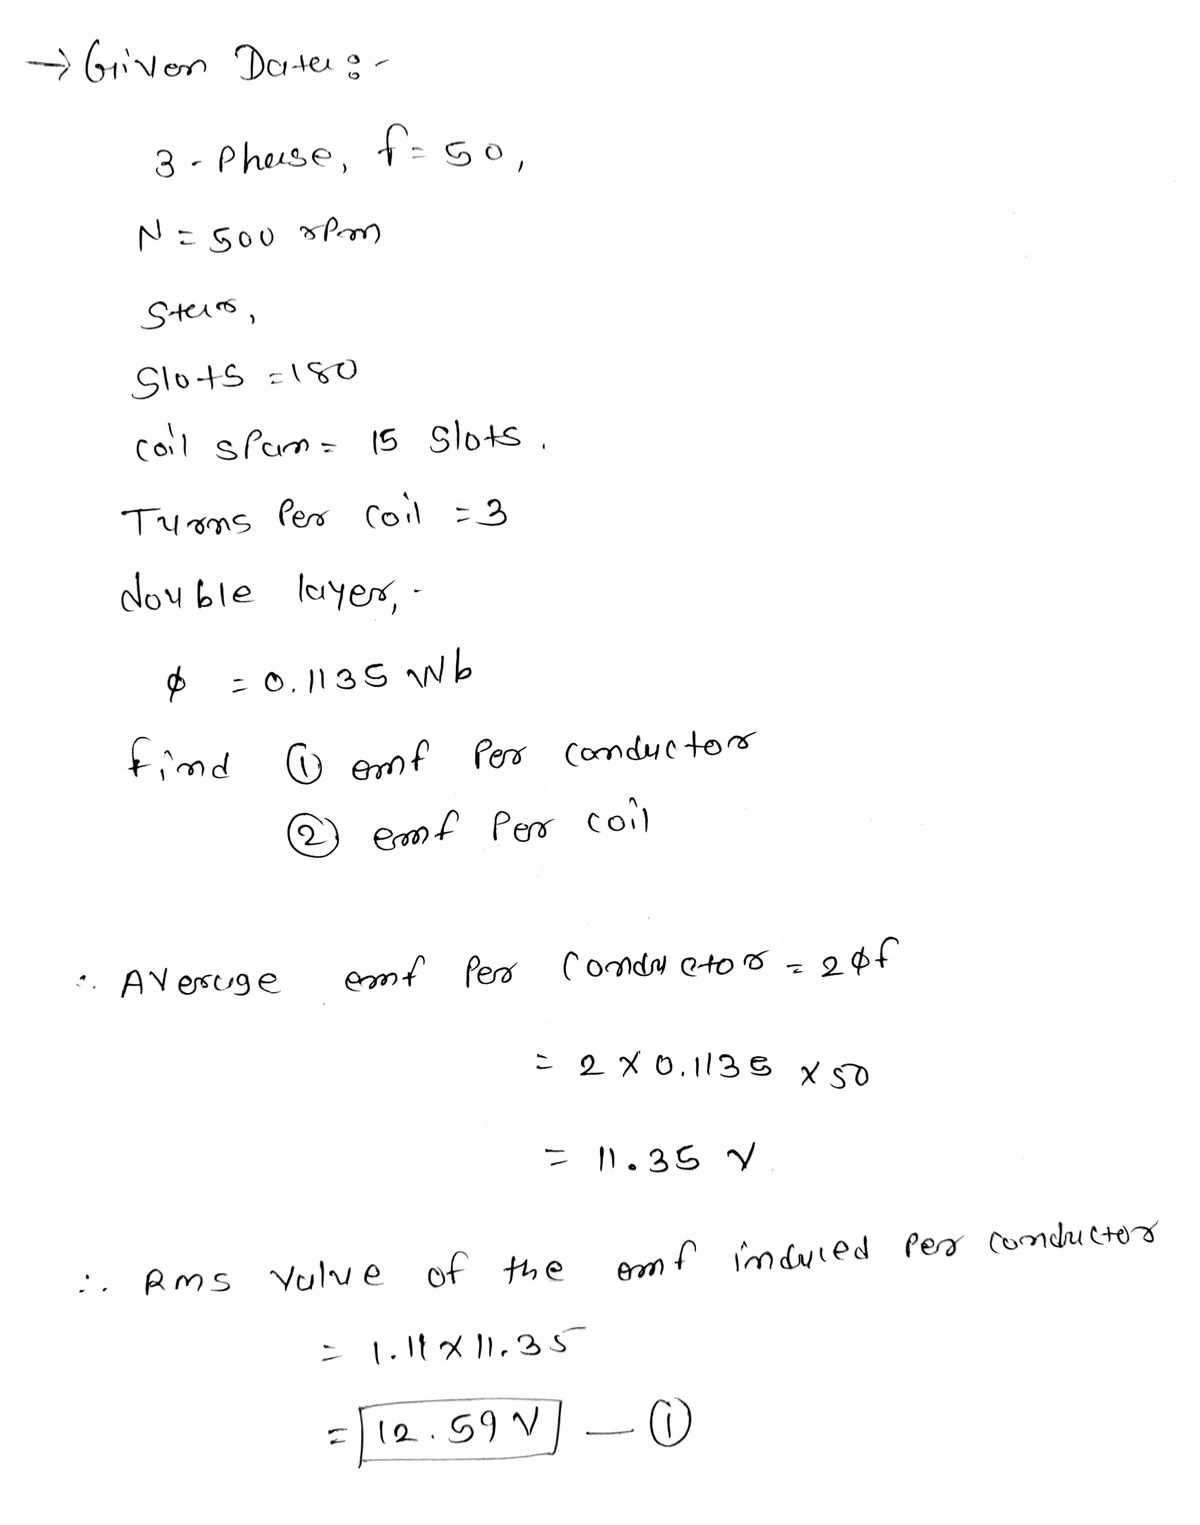 → Given Data :-
3 - Phase, f = 50,
N = 500 rpm
Star,
Slots = 180
coil span = 15 Slots.
Turns Per coil = 3
double layer, -
ϕ = 0.1135 Wb
find ① emf Per conductor
② emf Per coil
∴ Average emf Per Conductor = 2ϕf
= 2 × 0.1135 × 50
= 11.35 V
∴ Rms Value of the emf induced Per conductor
= 1.11 × 11.35
= 12.59 V — ①